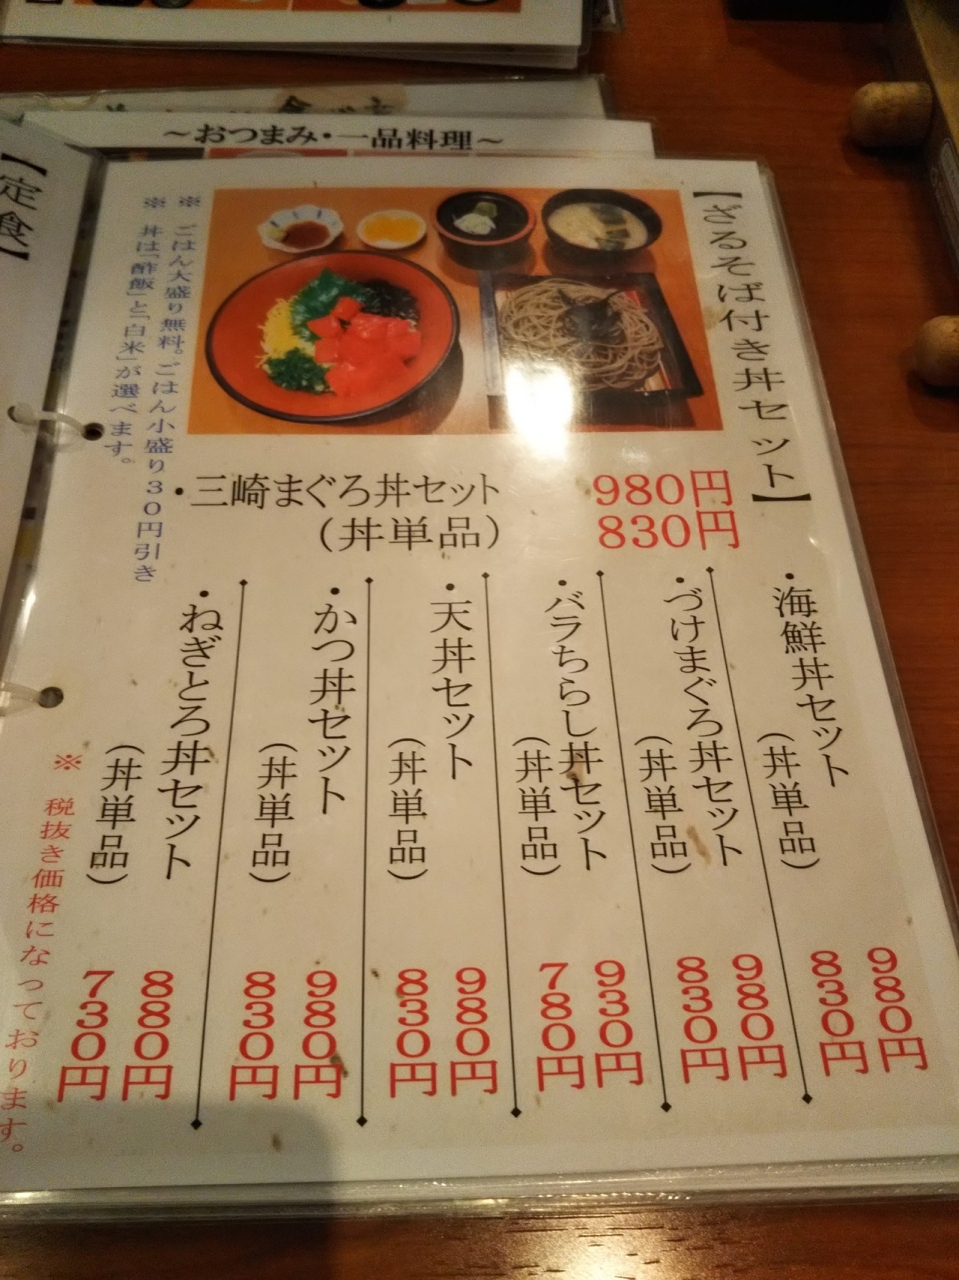 ～おつまみ・一品料理～
【定食】
【ざるそば付き丼セット】
※ ごはん大盛り無料。ごはん小盛り30円引き
※ 丼は「酢飯」と「白米」が選べます。
・三崎まぐろ丼セット 980円
（丼単品） 830円
・海鮮丼セット 980円
（丼単品） 830円
・づけまぐろ丼セット 980円
（丼単品） 830円
・バラちらし丼セット 930円
（丼単品） 780円
・天丼セット 980円
（丼単品） 830円
・かつ丼セット 980円
（丼単品） 830円
・ねぎとろ丼セット 880円
（丼単品） 730円
※ 税抜き価格になっております。